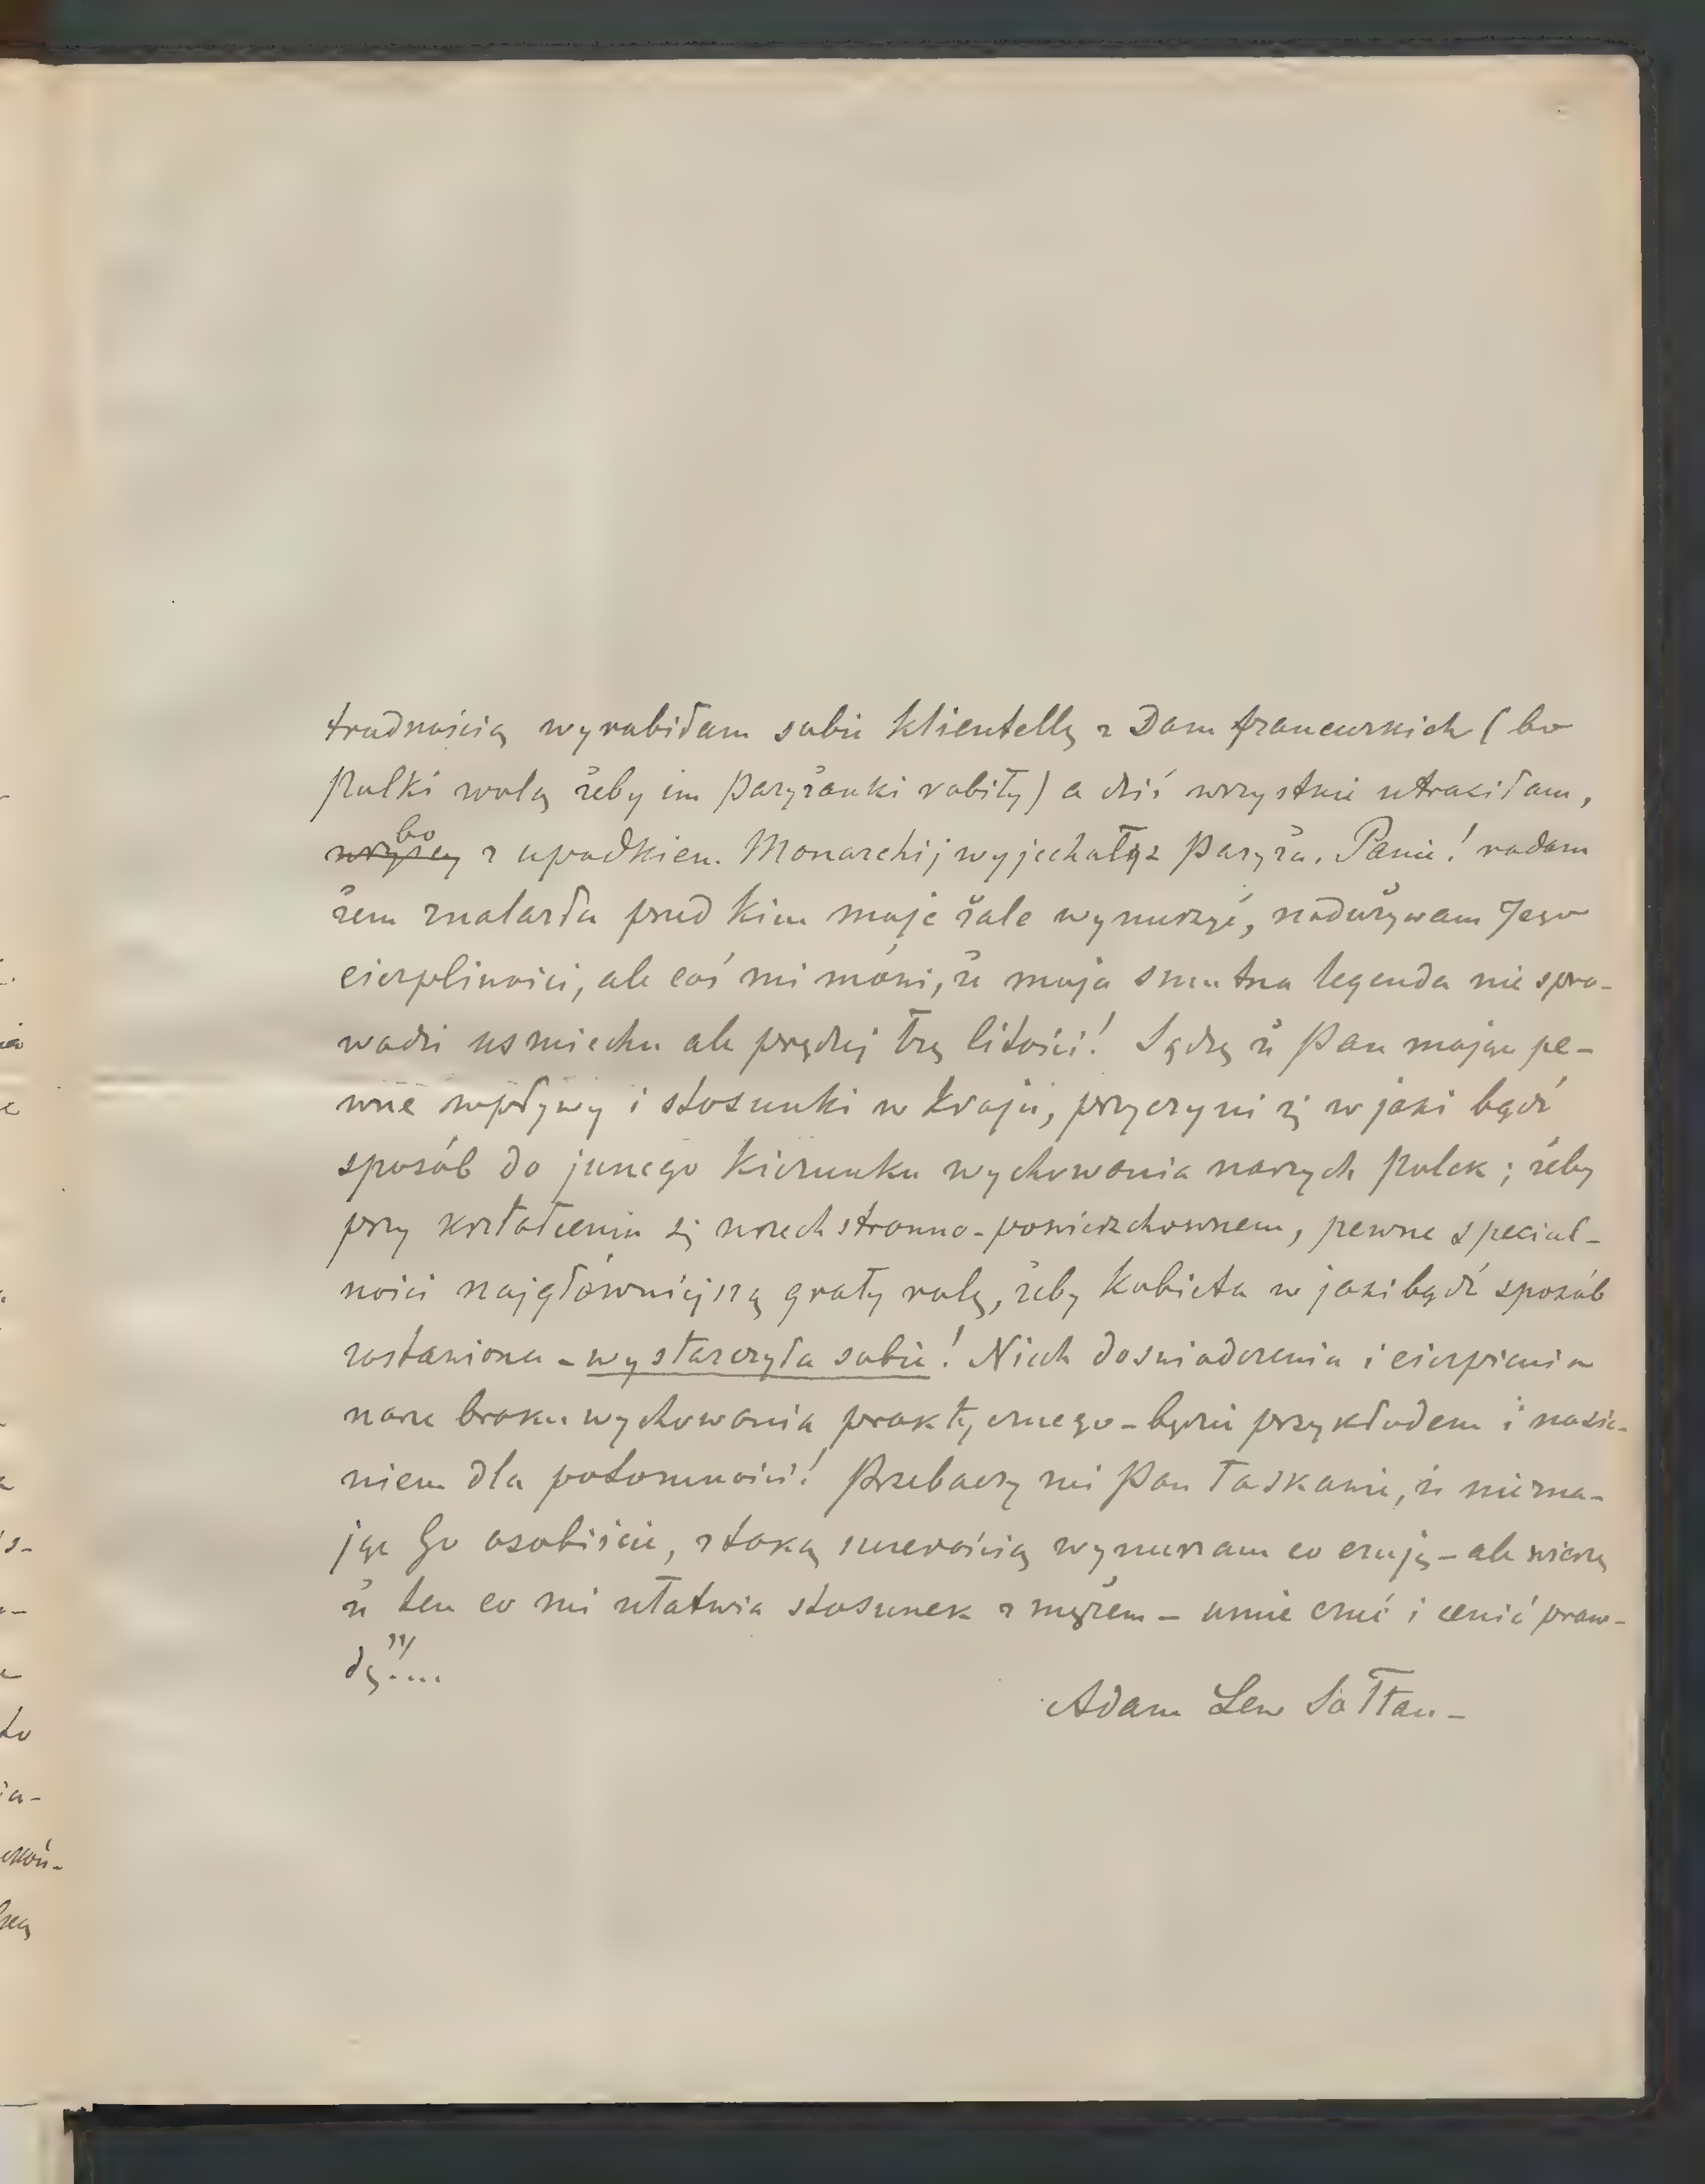 trudnością wyrobiłam sobie klientellę z Dam francuzkich (bo
Polki wolą żeby im Paryżanki robiły) a dziś wszystkie utraciłam,
bo
z upadkiem Monarchij wyjechały z Paryża. Panie! radam
żem znalazła przed kim moje żale wynurzyć, nadużywam Jego
cierpliwości, ale coś mi mówi, że moja smutna legenda nie spro-
wadzi usmiechu ale prędzej łzę litości! Sądzę że Pan mając pe-
wne wpływy i stosunki w kraju, przyczyni się w jaki bądź
sposób do innego kierunku wychowania naszych Polek; żeby
przy kształceniu się wszechstronno-powierzchownem, pewne special-
ności najgłówniejszą grały rolę, żeby kobieta w jaki bądź sposób
zostawiona - wystarczyła sobie! Niech doswiadczenia i cierpienia
nasze braku wychowania praktycznego - będzie przykładem i nasie-
niem dla potomności! Przebaczy mi Pan łaskawie, że niezna-
jąc Go osobiście, z taką szczerością wynurzam co czuję - ale wierzę
że ten co mi ułatwia stosunek z mężem - umie czuć i cenić praw-
dę"....
Adam Lew Sołtan -